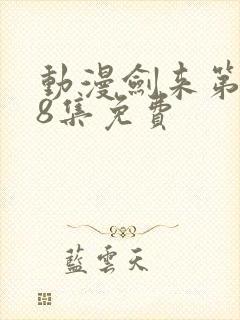 動漫劍来第
8集免費
藍雲天